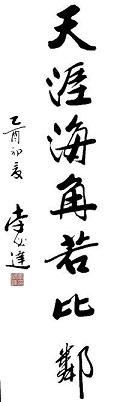 天涯海角若比鄰
乙酉初夏
李必達